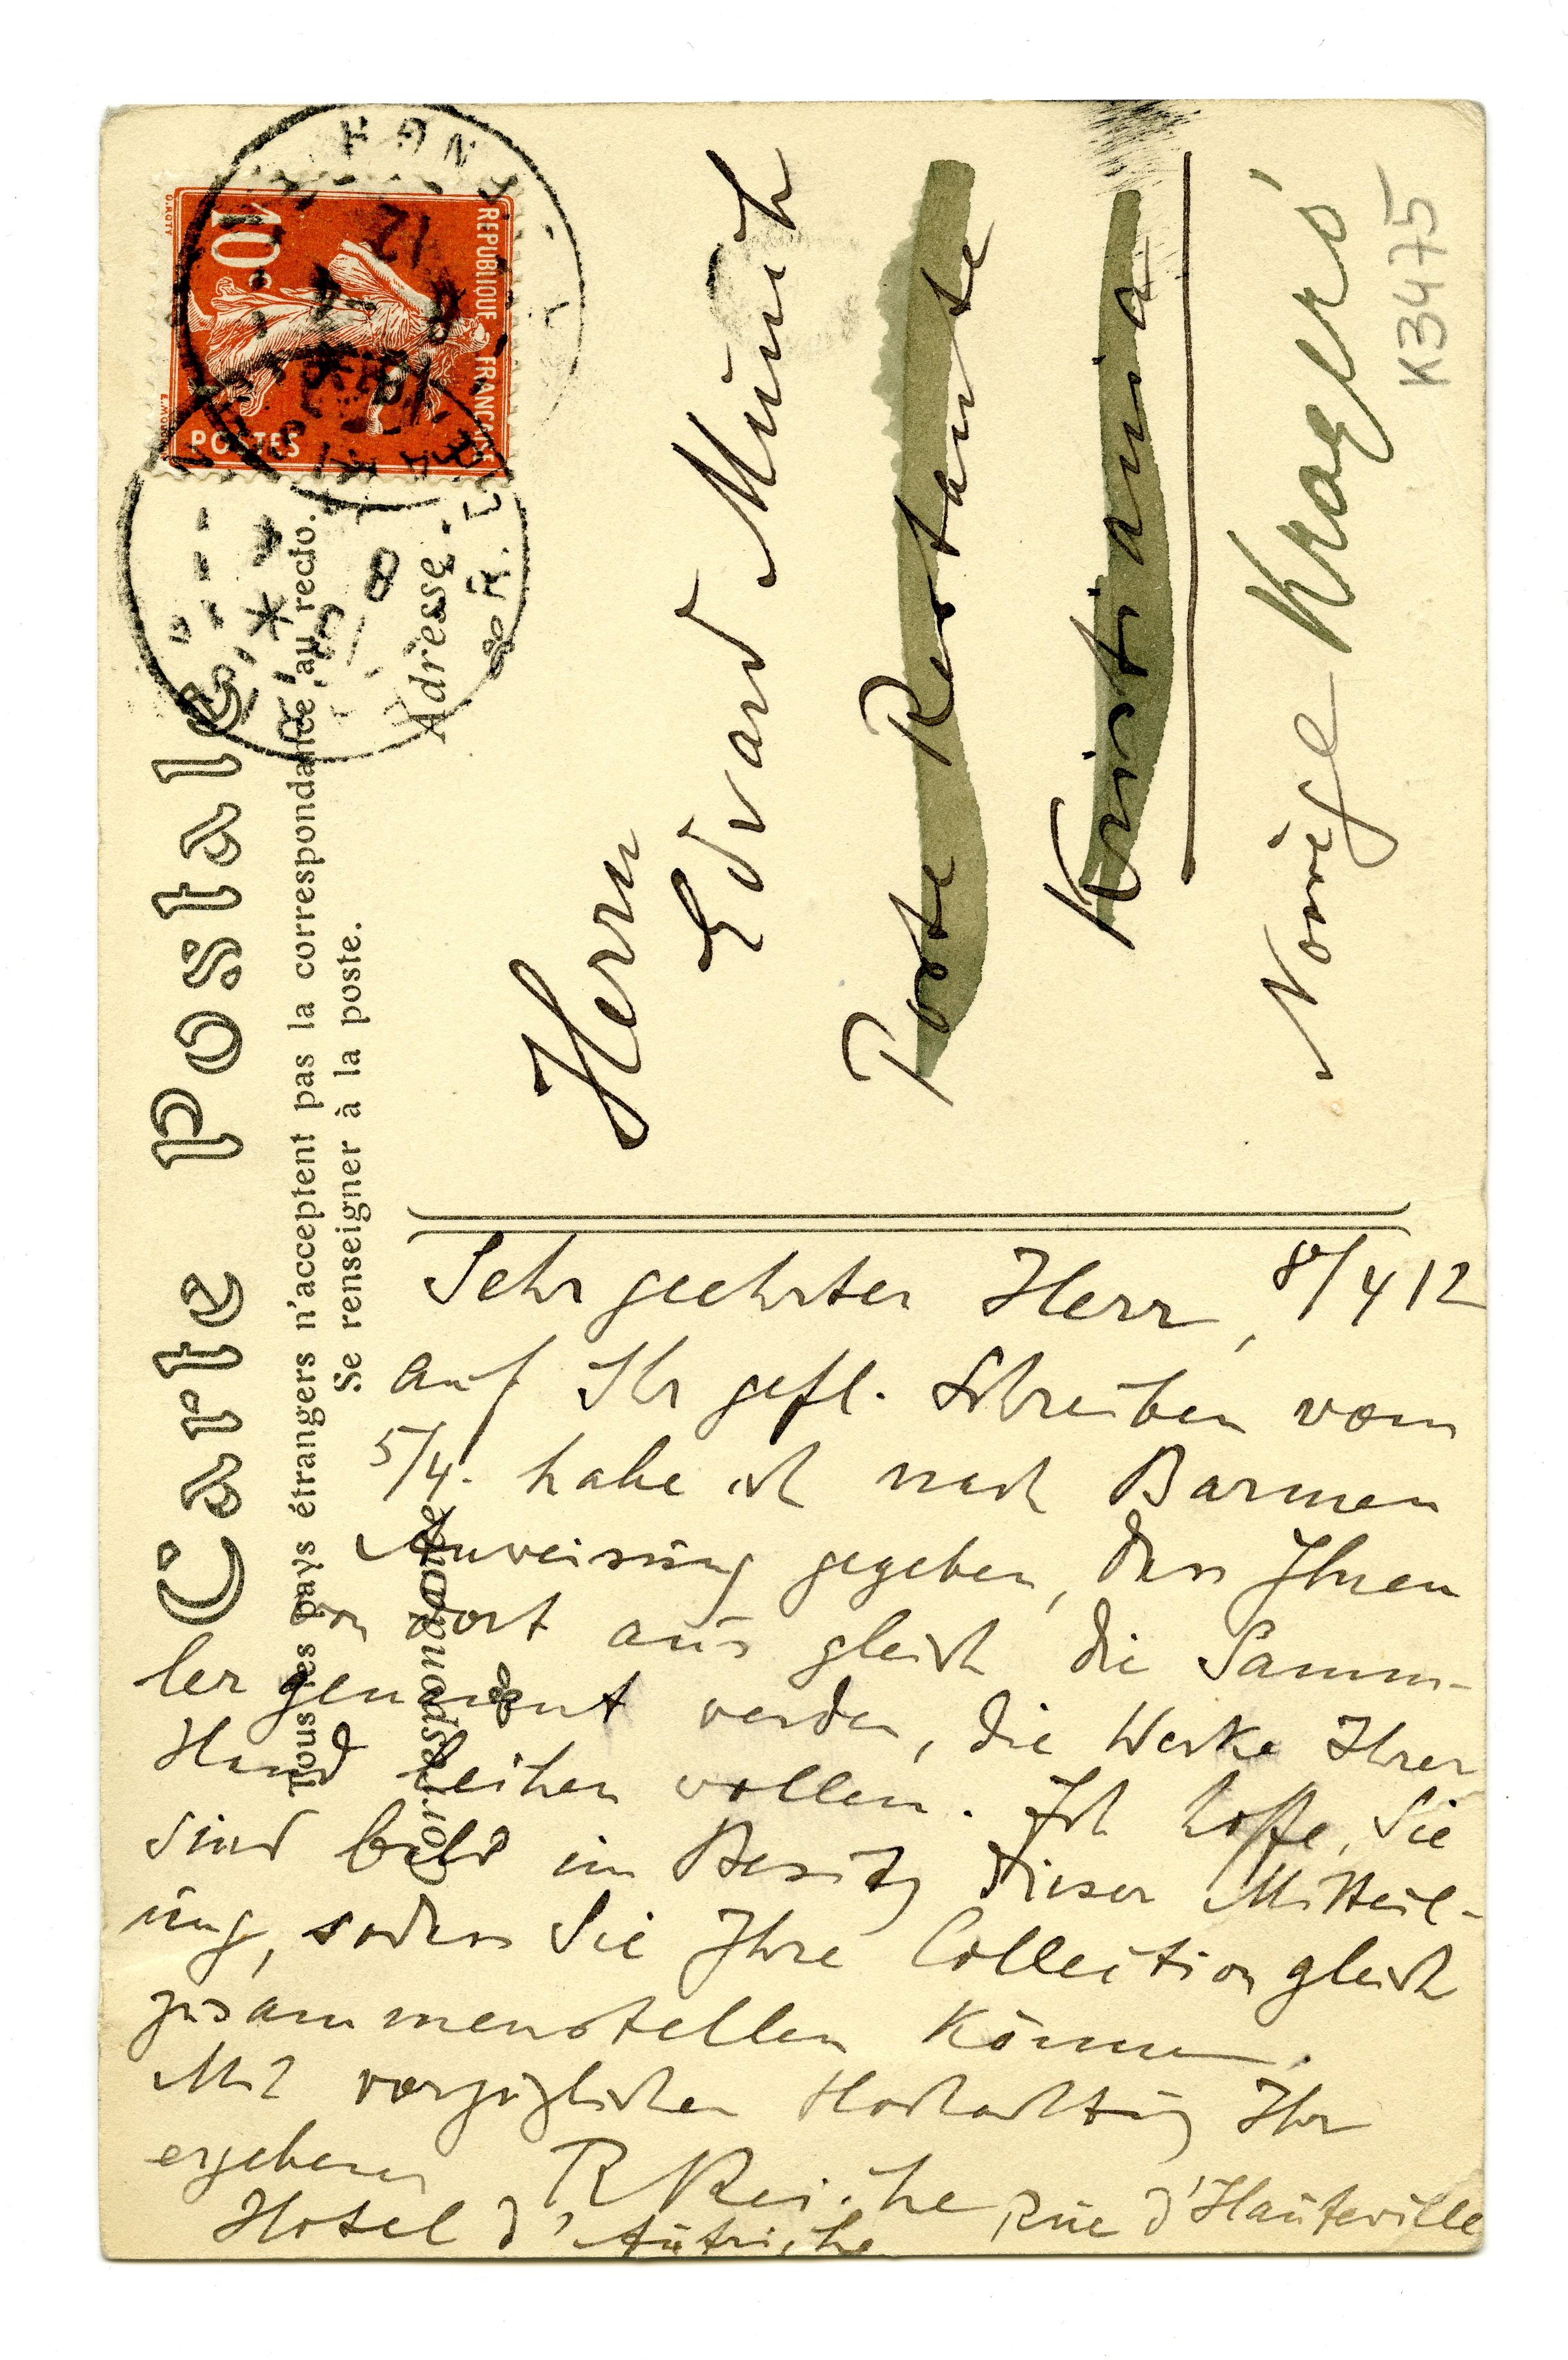 Carte Postale
Tous les pays étrangers n'acceptent pas la correspondance au recto.
Se renseigner à la poste.
Correspondance
Adresse
REPUBLIQUE FRANCAISE
10c
POSTES
O. ROTY
Herrn
Edvard Munch
Poste Restante
Kristiania
Norvège Kragerö
K3475
Sehr geehrter Herr, 8/4 12
auf Ihr gefl. Schreiben vom
5/4. habe ich nach Barmen
Anweisung gegeben, dass Ihnen
von dort aus gleich die Samm-
ler genannt werden, die Werke Ihrer
Hand leihen wollen. Ich hoffe, Sie
sind bald im Besitz dieser Mitteil-
ung, sodass Sie Ihre Collection gleich
zusammenstellen können.
Mit vorzüglicher Hochachtung Ihr
ergebener R Reiche
Hotel d'Autriche Rue d'Hauteville